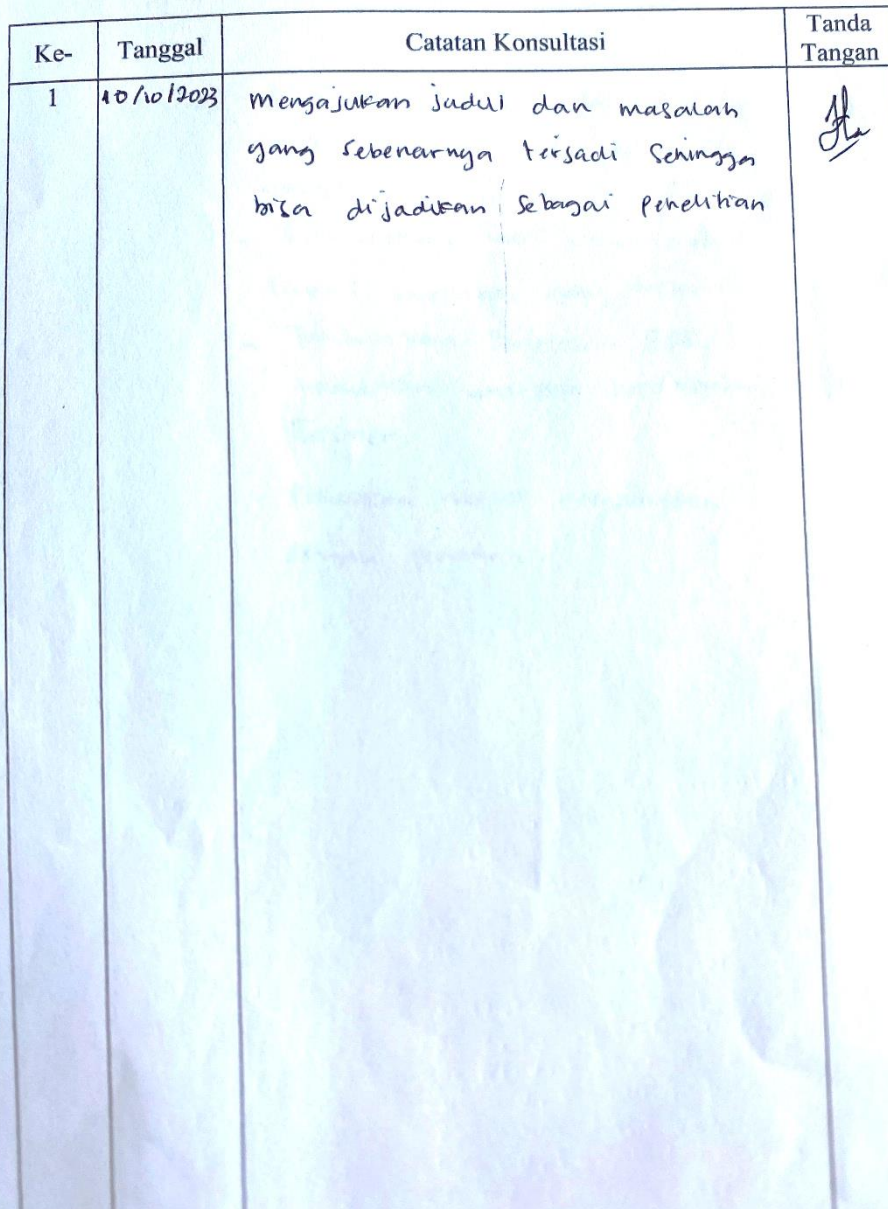 Ke- Tanggal Catatan Konsultasi Tanda Tangan
1 10/10/2023 mengajukan judul dan masalah
yang sebenarnya terjadi sehingga
bisa dijadikan sebagai penelitian